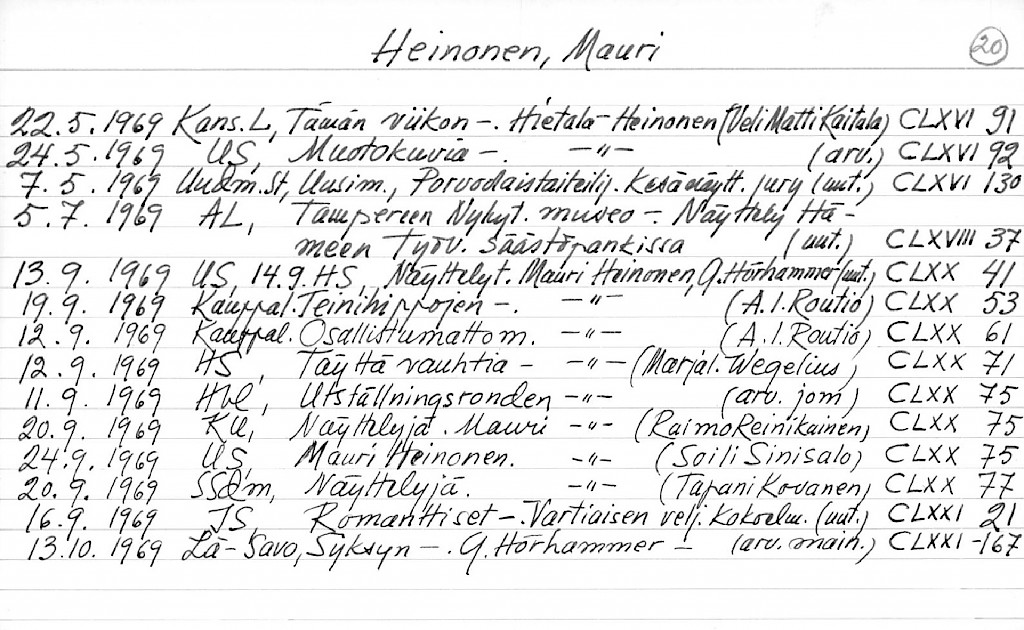 Heinonen, Mauri 20
22.5.1969 Kans.L, Tämän viikon -. Hietala-Heinonen (Veli Matti Kaitala) CLXVI 91
24.5.1969 US, Muotokuvia -. -"- (arv.) CLXVI 92
7.5.1969 Uudm.St, Uusim., Porvoolaistaiteilij. Kesänäytt. jury (uut.) CLXVI 130
5.7.1969 AL, Tampereen Nykyt. museo - Näyttely Hä-
meen Työv. Säästöpankissa (uut.) CLXVIII 37
13.9.1969 US, 14.9. HS, Näyttelyt. Mauri Heinonen, G. Hörhammer (uut.) CLXX 41
19.9.1969 Kauppal. Teinihippojen -. -"- (A.I. Routio) CLXX 53
12.9.1969 Kauppal. Osallistumattom. -"- (A.I. Routio) CLXX 61
12.9.1969 HS, Täyttä vauhtia - -"- (Marjal. Wegelius) CLXX 71
11.9.1969 Hbl, Utställningsronden -"- (arv. jom) CLXX 75
20.9.1969 KU, Näyttelyjä. Mauri -"- (Raimo Reinikainen) CLXX 75
24.9.1969 US, Mauri Heinonen. -"- (Soili Sinisalo) CLXX 75
20.9.1969 SSdm, Näyttelyjä. -"- (Tapani Kovanen) CLXX 77
16.9.1969 IS, Romanttiset -. Vartiaisen velj. Kokoelm. (uut.) CLXXI 21
13.10.1969 Lä-Savo, Syksyn -. G. Hörhammer - (arv. main.) CLXXI -167